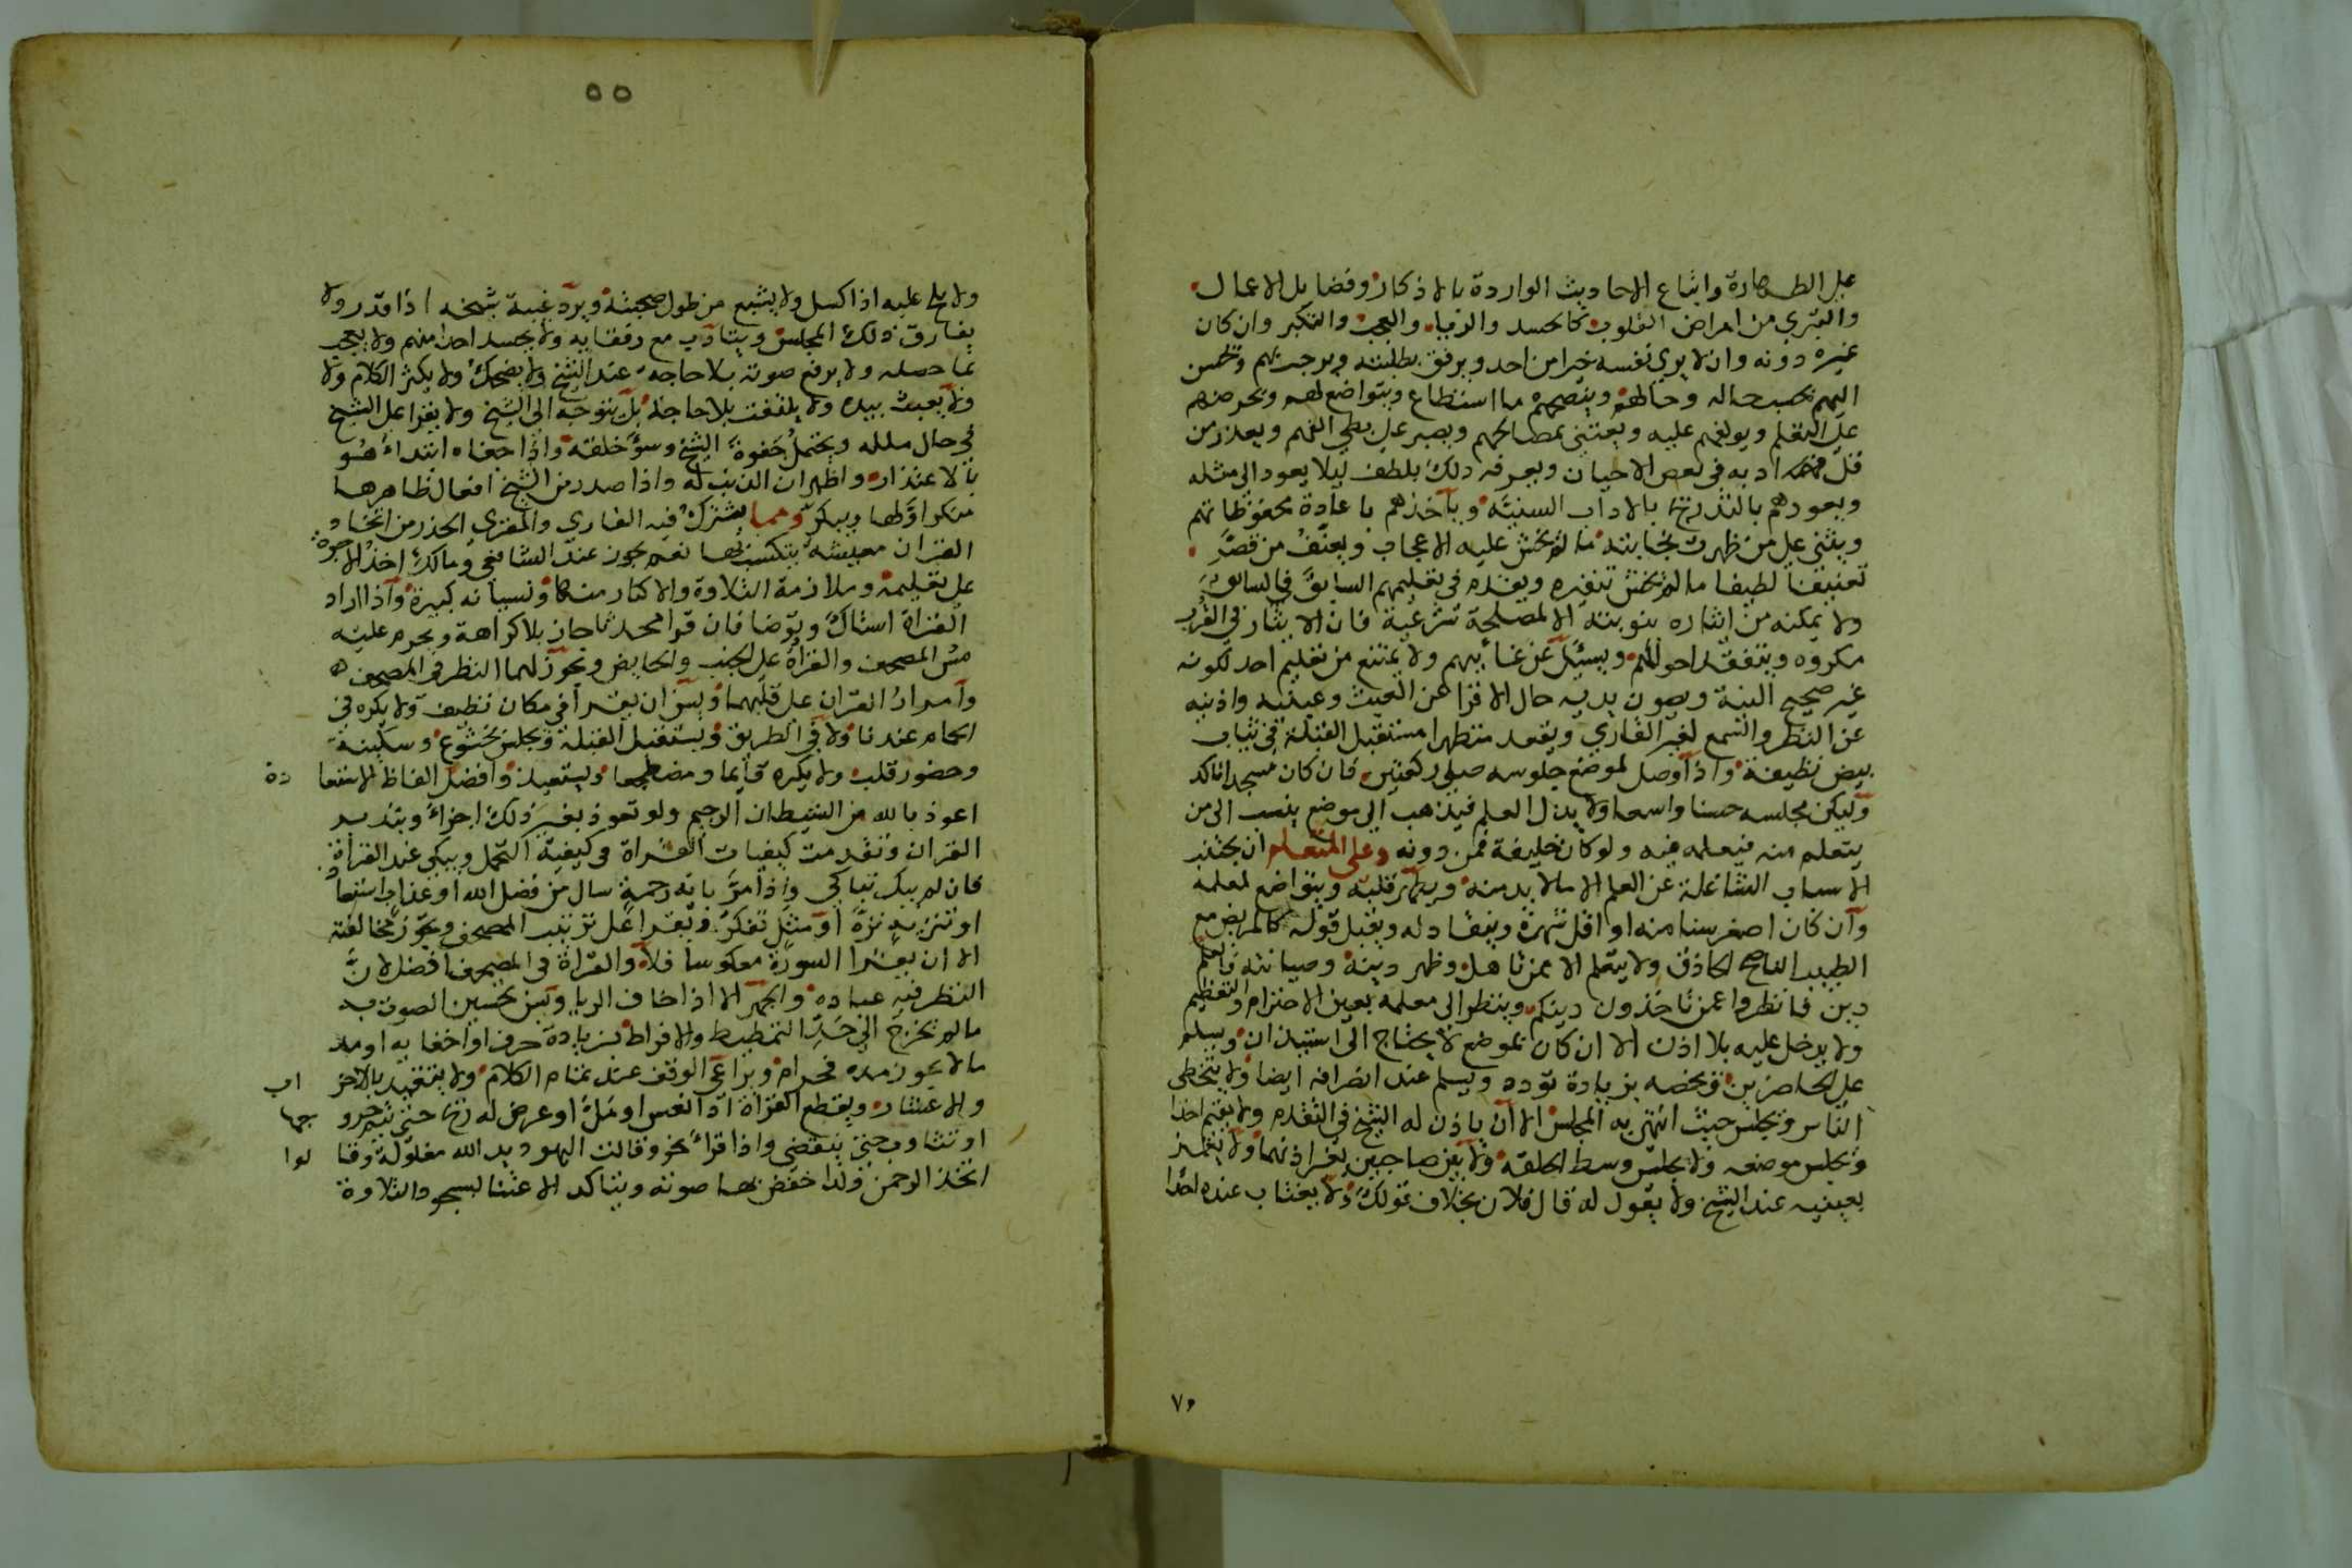 على الطهارة واتباع الاحاديث الواردة بالاذكار وفضايل الاعمال
والتبري من امراض القلوب كالحسد والريا والعجب والتكبر وان كان
غيره دونه وان لا يري نفسه خيرا من احد ويرفق بطلبته ويرحب بهم وتحسن
اليهم بحسب حاله وحالهم وينصحهم ما استطاع ويتواضع لهم ويحرضهم
على التعلم ويولفهم عليه ويعتني بمصالحهم ويصبر على بطي الفهم ويعذر من
قل ادبه في بعض الاحيان ويعرفه ذلك بلطف ليلا يعود الى مثله
ويعودهم بالتدريج بالاداب السنية وياخذهم باعادة محفوظاتهم
ويثني على من ظهرت نجابته ما لم يخش عليه الاعجاب ويعنف من قصر
تعنيفا لطيفا ما لم يخش تنفيره ويقدم في تعليمهم السابق فالسابق
ولا يمكنه من ايثاره بنوبته الا لمصلحة شرعية فان الايثار في القرب
مكروه ويتفقد احوالهم ويسئل عن غائبهم ولا يمتنع من تعليم احد لكونه
غير صحيح النية ويصون يديه حال الاقرا عن العبث وعينيه واذنيه
عن النظر والسمع لغير القاري ويقعد متطهرا مستقبل القبلة في ثياب
بيض نظيفة واذا وصل لموضع جلوسه صلى ركعتين فان كان مسجدا تاكد
وليكن مجلسه حسنا واسعا ولا يذل العلم فيذهب الى موضع ينسب الى من
يتعلم منه فيعلمه فيه ولو كان خليفة فمن دونه وعلى المتعلم ان يجتنب
الاسباب الشاغلة عن العلم الا مالابد منه ويطهر قلبه ويتواضع لمعلمه
وان كان اصغر سنا منه او اقل شهرة وينقاد له ويقبل قوله كالمريض مع
الطبيب الناصح الحاذق ولا يتعلم الا ممن تاهل وظهر دينه وصيانته فالعلم
دين فانظروا عمن تاخذون دينكم وينظر الى معلمه بعين الاحترام والتعظيم
ولا يدخل عليه بلا اذن الا ان كان بموضع لا يحتاج الى استيذان ويسلم
على الحاضرين ويخصه بزيادة تودد ويسلم عند انصرافه ايضا ولا يتخطى
الناس ويجلس حيث انتهى به المجلس الا ان ياذن له الشيخ في التقدم ولا يقيم احدا
ويجلس موضعه ولا يجلس وسط الحلقة ولا بين صاحبين بغير اذنهما ولا يغمز
بعينيه عند الشيخ ولا يقول له قال فلان بخلاف قولك ولا يغتاب عنده احدا
٧٥
٥٥
ولا يلح عليه اذا كسل ولا يشبع من طول صحبته ويرد غيبة شيخه اذا قدر ولا
يفارق ذلك المجلس ويتادب مع رفقايه ولا يحسد احدا منهم ولا يعجب
بما حصله ولا يرفع صوته بلا حاجة عند الشيخ ولا يضحك ولا يكثر الكلام ولا
ولا يعبث بيده ولا يلتفت بلا حاجة بل يتوجه الى الشيخ ولا يقرا على الشيخ
في حال ملله ويحتمل جفوة الشيخ وسؤ خلقه واذا جفاه ابتداء هو
بالاعتذار واظهر ان الذنب له واذا صدر من الشيخ افعال ظاهرها
منكر اولها ومما يشترك فيه القاري والمقري الحذر من اتخاذ
القران معيشة يتكسب بها نعم يجوز عند الشافعي ومالك اخذ الاجرة
على تعليمه وملازمة التلاوة والاكثار منها ونسيانه كبيرة واذا اراد
القراة استاك وتوضا فان قرا محدثا جاز بلا كراهة ويحرم عليه
مس المصحف والقراة على الجنب والحايض ويجوز لهما النظر في المصحف
وامرار القران على قلبهما ويسن ان يقرا في مكان نظيف ولا يكره في
الحمام عندنا ولا في الطريق ويستقبل القبلة ويجلس بخشوع وسكينة
وحضور قلب ولا يكره قايما ومضطجعا ويستعيذ وافضل الفاظ الاستعاذة
اعوذ بالله من الشيطان الرجيم ولو تعوذ بغير ذلك اجزاء ويتدبر
القران وتقدمت كيفيات القراة في كيفية التحمل ويبكي عند القراة
فان لم يبك تباكى واذا مر باية رحمة سال من فضل الله او عذاب استعاذ
او تنزيه نزه او مثل تفكر ويقرا على ترتيب المصحف ويجوز مخالفته
الا ان يقرا السورة معكوسا فلا والقراة في المصحف افضل لان
النظر فيه عبادة والجهر الا اذا خاف الريا ويسن تحسين الصوت به
مالم يخرج الى حد التمطيط والافراط بزيادة حرف او اخفايه او مد
مالا يجوز مده فحرام ويراعي الوقف عند تمام الكلام ولا يتقيد بالاحزاب
والاعشار ويقطع القراة اذا نعس او مل او عرض له ريح حتى يتم خروجها
او تثاوب حتى ينقضي واذا قراء نحو وقالت اليهود يد الله مغلولة وقالوا
اتخذ الرحمن ولدا خفض بها صوته ويتاكد الاعتنا لسجود التلاوة